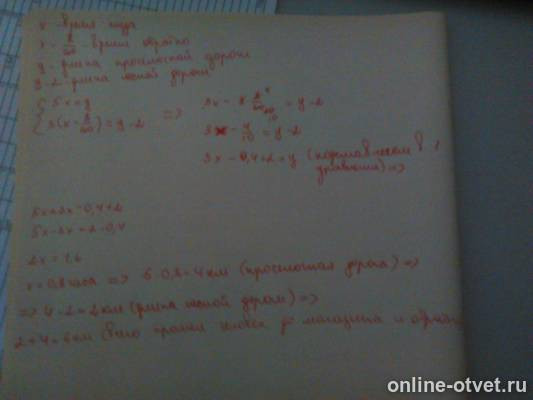 x - время туда
x - 8/60 - время обратно
y - длина проселочной дороги
y-2 - длина лесной дороги
{ 5x=y
3(x - 8/60) = y-2 => 3x - 3·8/60 = y-2
3x - 4/10 = y-2
3x - 0,4+2 = y (подставляем в 1
уравнение) =>
5x=3x-0,4+2
5x-3x=2-0,4
2x=1,6
x=0,8 часа => 5·0,8=4 км (проселочная дорога) =>
=> 4-2=2 км (длина лесной дороги) =>
2+4=6 км (всего прошел до магазина и обратно
online-otvet.ru